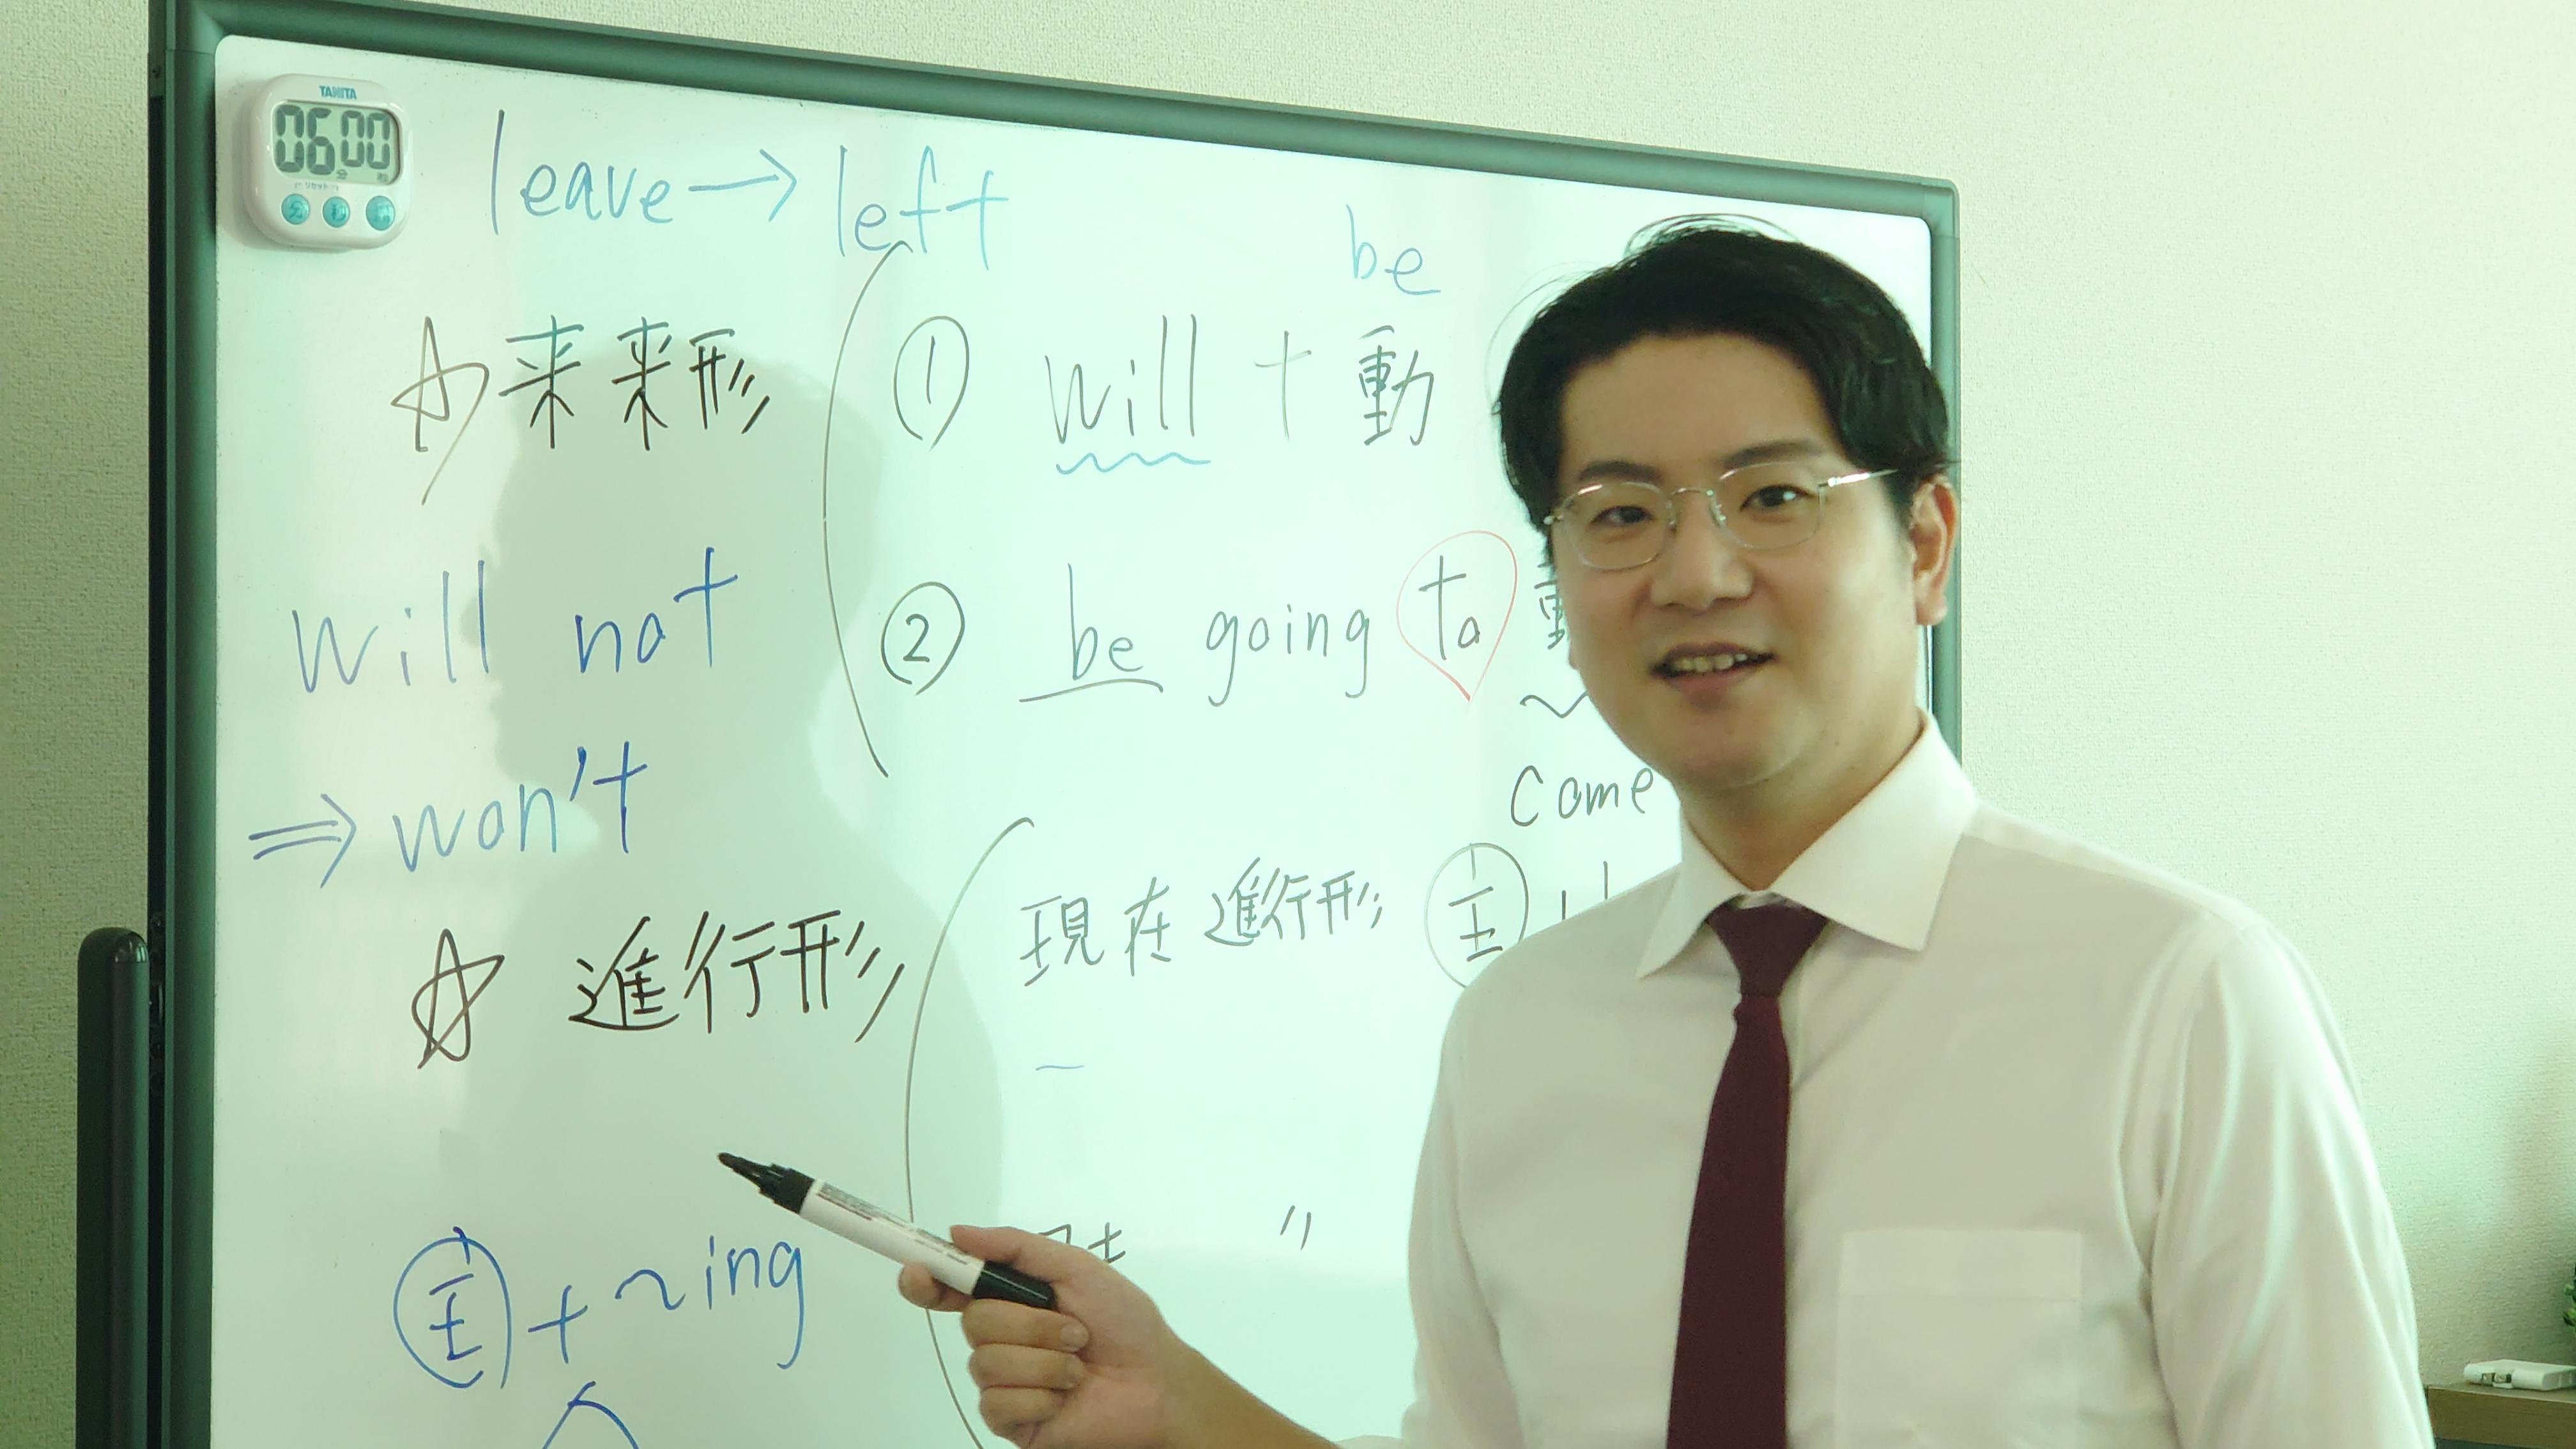 TANITA
06 00
分 秒
leave → left
be
☆ 来来形
① will + 動
② be going to 動
will not
come
⇒ won't
☆ 進行形
現在進行形 主
〃
主 + ~ing